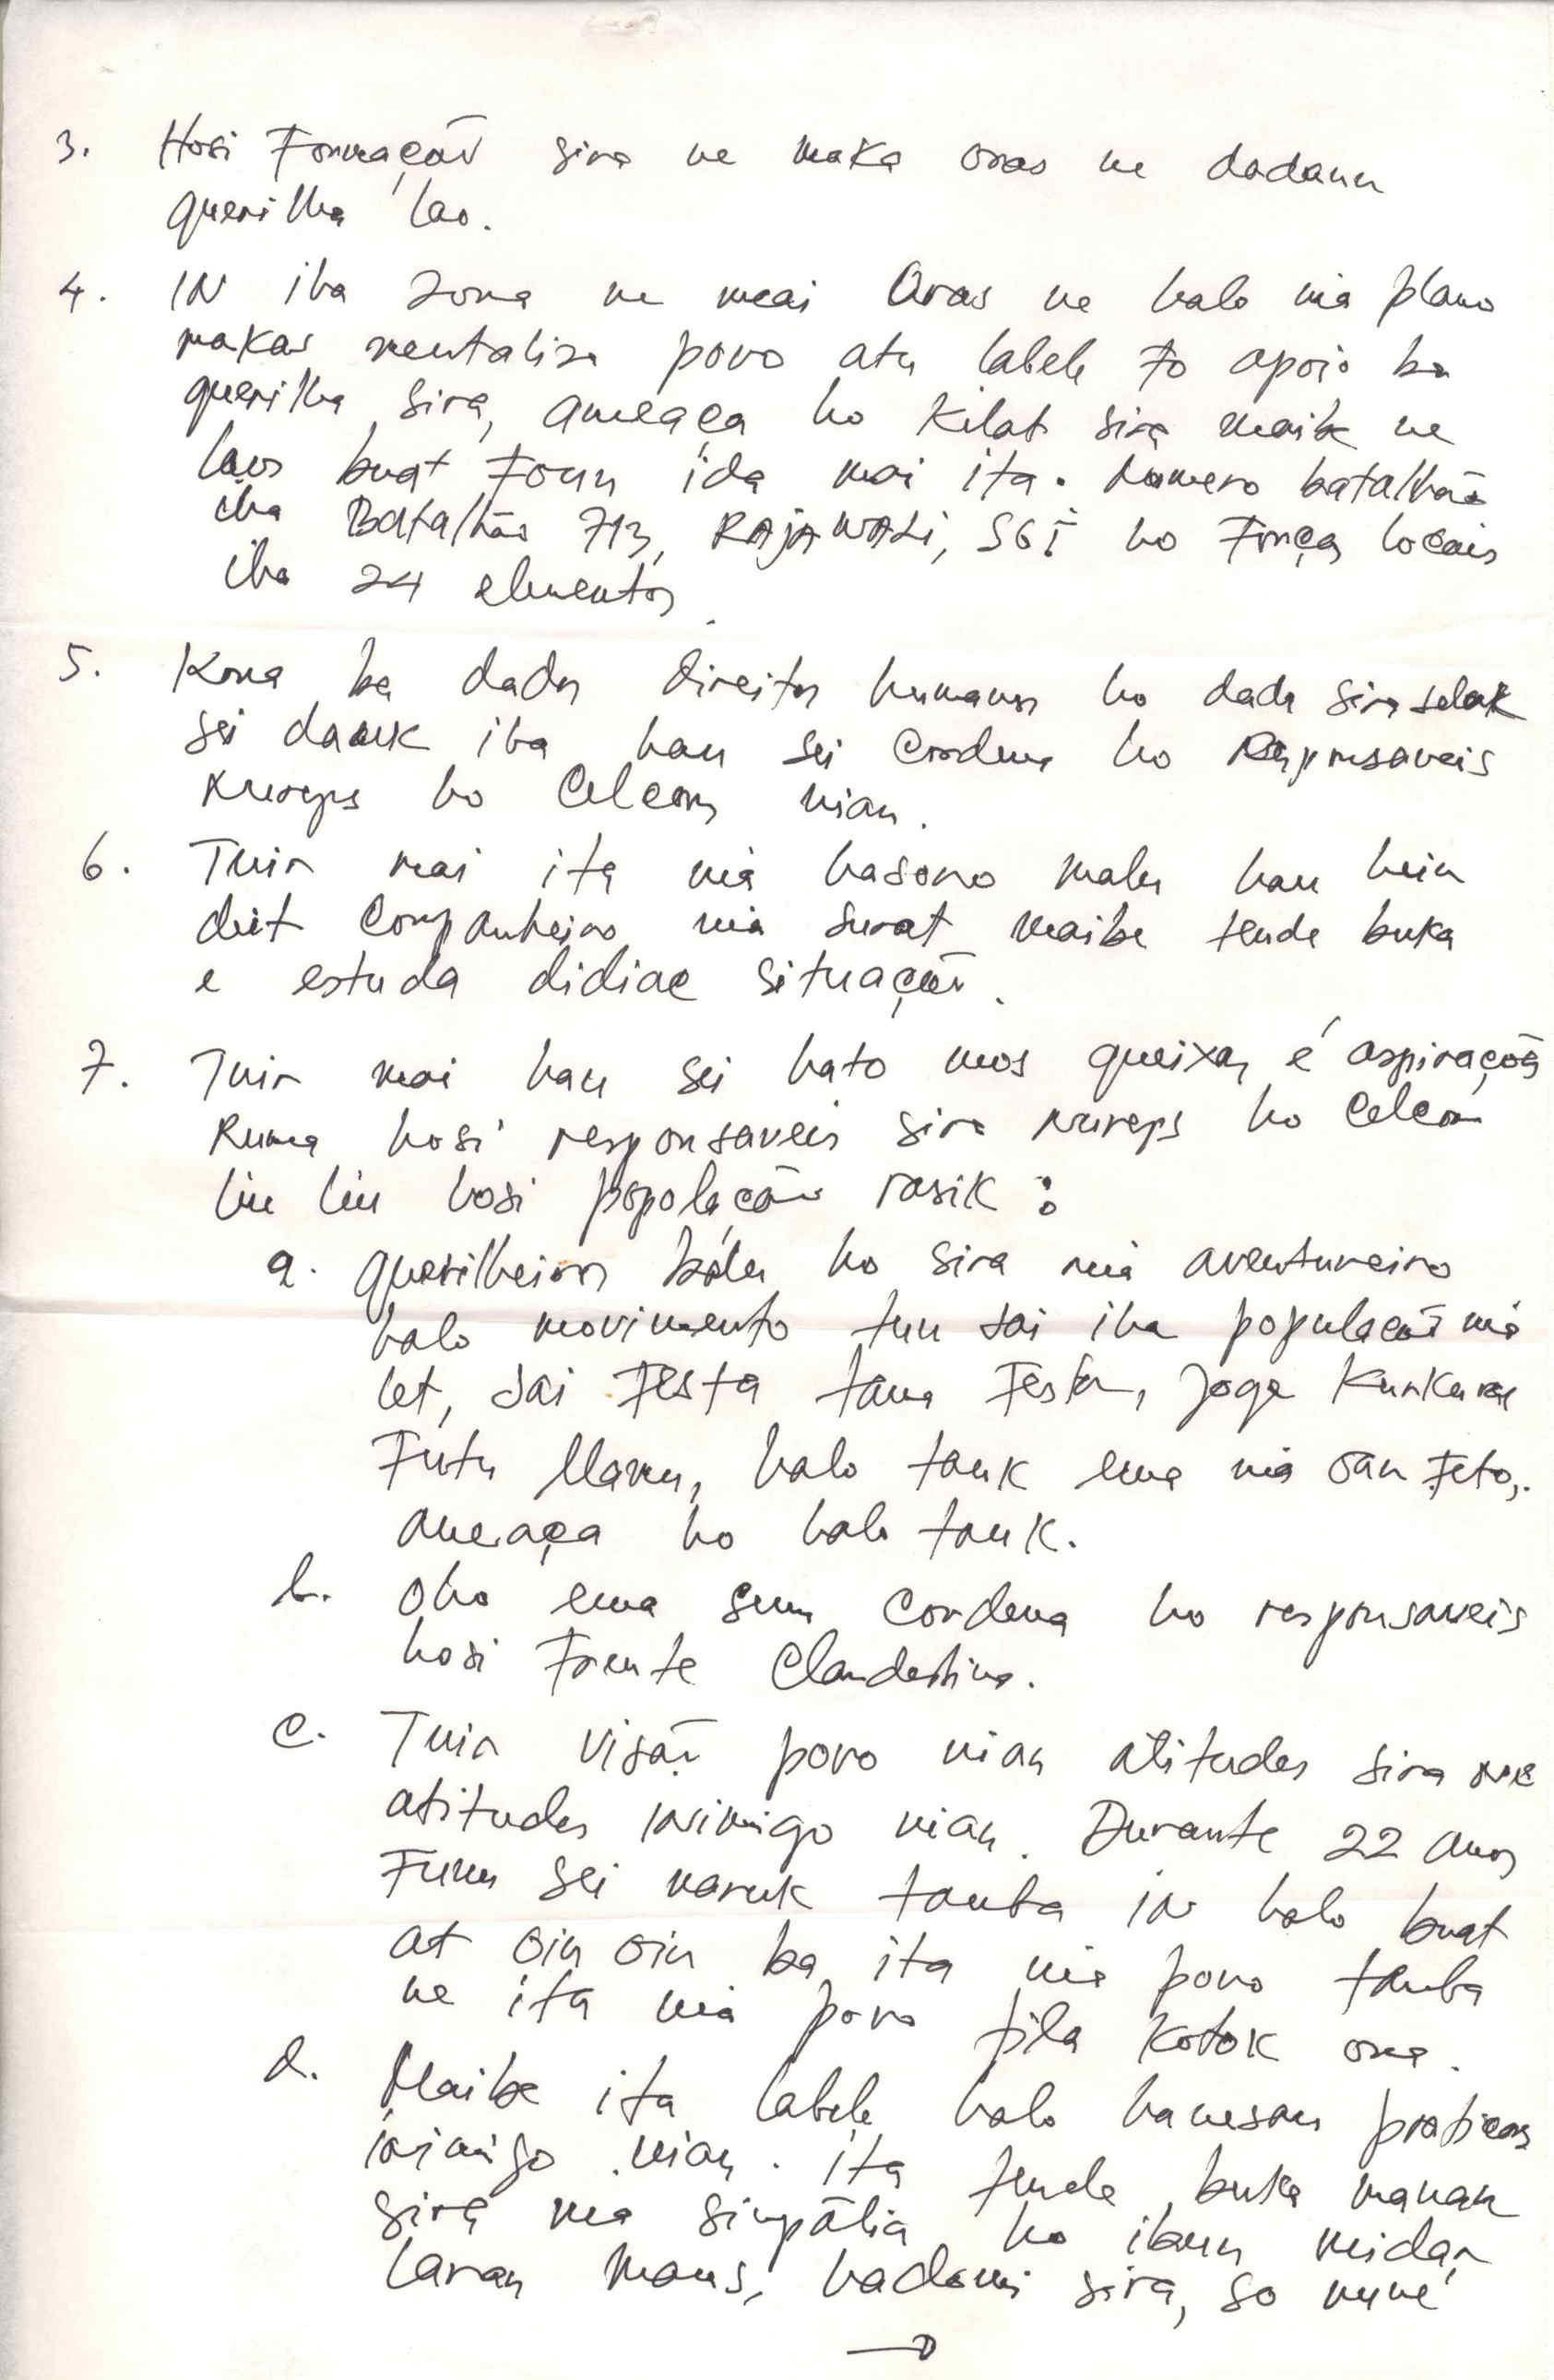 3. Hosi Formação sira ne maka oras ne dadaun
guerilha lao.
4. IN iha zona ne mai Oras ne halo nia plano
makas mentaliza povo atu labele fo apoio ba
guerilha sira, ameaça ho Kilat sira maibe ne
laos buat foun ida mai ita. Numero batalhão
iha Batalhão 713, RAJAWALI, SGI ho Força locais
iha 24 elementos.
5. Kona ba dados direitos humanos ho dadu sira seluk
sei dauk iha hau sei Cordena ho Responsaveis
Nureps ho Celcom nian.
6. Tuir mai ita nia hasoro malu hau hein
deit Companheiro nia surat maibe tende buka
e estuda didiac situação.
7. Tuir mai hau sei hato mos queixas é aspirações
Ruma hosi responsaveis sira nureps ho Celcom
liu liu hosi população rasik :
a. guerilheiros balu ho sira nia aventureiro
halo movimento tun sai iha população nia
let, sai festa tama festa, joga Kurkuru
Futu Manu, halo tauk ema nia oan feto,
ameaça ho halo tauk.
b. Oho ema sem Cordena ho responsaveis
hosi Frente Clandestina.
c. Tuir visão povo nian atitudes sira ne
atitudes inimigo nian. Durante 22 anos
Funu sei naruk tamba IN halo buat
at oin oin ba ita nia povo tamba
ne ita nia povo fila Kotok ona.
d. Maibe ita labele halo hanesan praticas
inimigo nian. ita tende buka manan
sira nia simpátia ho ibun midar
laran maus, hadomi sira, so nune